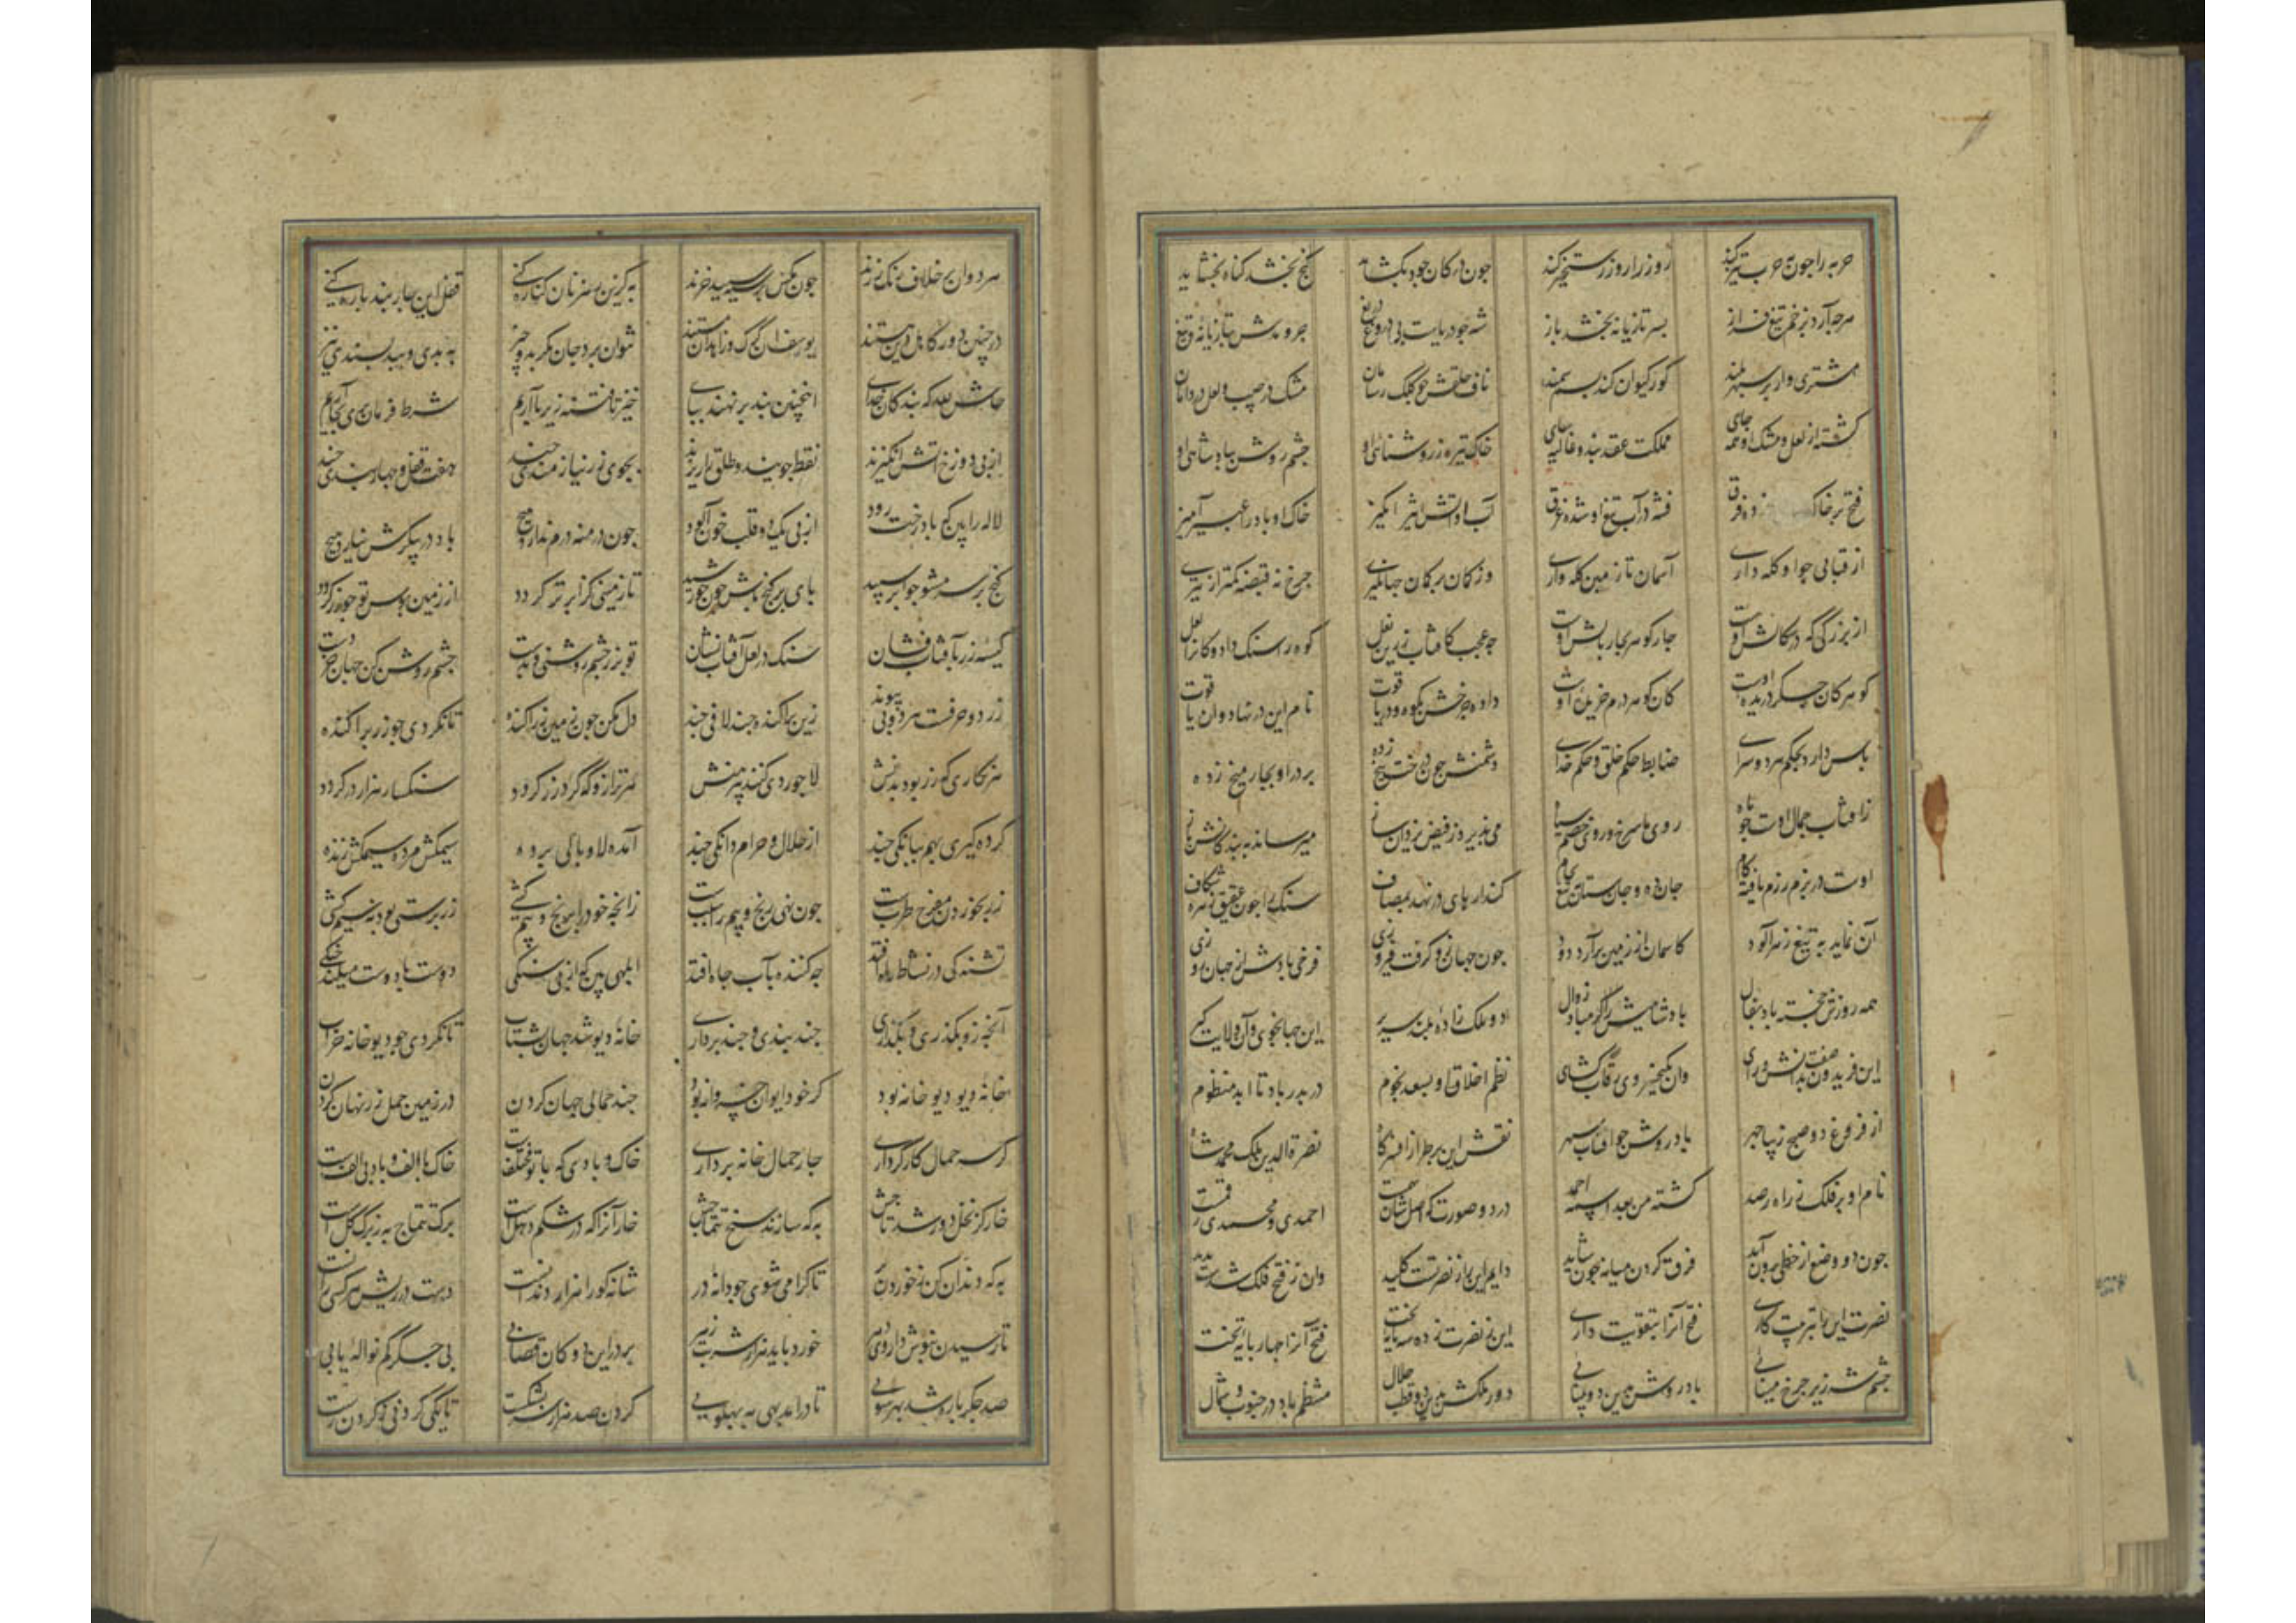 حربه را جون بحرب تیز کند روز را روز رستخیز کند جون در کان جود بکشاید کنج بخشد کناه بخشاید
هرجه آرد بزخم تیغ فراز بسر تازیانه بخشد باز شه جو دریاست بی دروغ و دریغ جزر و مدش بتازیانه و تیغ
مشتری وار بر سپهر بلند کور کیوان کند بسم سمند ناف خلقش جو کلک رسامان مشک در جیب و لعل در دامان
کشته از لعل و مشک او همه جای مملکت عقد بند و غالیه سای خاک تیره ز روشنائی او جشم روشن بپادشاهی او
فتح بر خاک زده فرق فتنه در آب تیغ او شده غرق آب او آتش اثیر انکیز خاک او باد را عبیر آمیز
از قبای جو او کله داری آسمان تا زمین کله واری وز کمان بر کمان جهانکیری جرخ نه قبضه کمتر از تیری
از بزرکی که در کمالش اوست جار کوهر بجار بالش اوست جه عجب کافتاب زرین نعل کوه را سنک داد و کان را لعل
کوهر کان جکر دریده اوست کان کوهر درم خریده اوست داده جرخش بکوه و دریا قوت نام این در نهاد و آن یاقوت
باس دار دو حکم در دو سرای ضابط حکم خلق و حکم خدای دشمنش جون درخت بیخ زده بر در او بجار میخ زده
زافتاب جمال اوست جو ماه روی ما سرخ و روی خصم سیاه می بذیرد ز فیض یزدان ساز میرساند به بندکانش باز
اوست در بزم و رزم یافته کام جان ده و جان ستان بتیغ و بجام کندار بای در نهد بمصاف سنک را جون عقیق زهره شکاف
آن نماید به تیغ زهرآلود کاسمان از زمین برآرد دود جون جهان زو کرفت فیروزی فرخی بادش از جهان روزی
همه روزش خجسته باد بفال بادشاهیش را مباد زوال دو ملک زاده بلند سریر این جهانجوی و آن ولایت کیر
این فریدون صفت بدانش و رای وان کیخسروی رقاب کشای نظم اخلاق او بسعد نجوم در بدر باد تا ابد منظوم
از فروغ دو صبح زیبا جهر باد روشن جو آفتاب سپهر نقش این بر طراز افسر و کاه نصرة الدین ملک محمد شاه
نام او بر فلک ز راه رصد کشته من بعد اسمه احمد در دو صورت که اصل شان احمدی و محمدی رقمست
جون دو وضع از خطی برون آید فرق کردن میانه جون شاید دایم این را ز نصرتست کلید وان ز فتح فلک شدست بدید
نصرت این را بتربیت کاری فتح آنرا بتقویت داری این ز نصرت زده سه پایه تخت فتح آنرا جهار بایه تخت
جشم شه زیر جرخ مینائی باد روشن بدین دو بینائی دور ملکش بدین دو قطب جلال منتظم باد در جنوب و شمال
هر دو ان بر خلاف رنک زند جون مکس بر سیه سبید خزند به کزین رهزنان کناره کنی قفل این جار بند باره کنی
در جنین دور کاهل دین بستند یوسفان کرک و زاهدان مستند نتوان برد جان مکر بدو جیز به بدی و ببد بسندی نیز
حاش لله که بندکان خدای اینجنین بند بر نهند ببای خیز تا فتنه زیر پا آریم شرط فرمان بری بجا آریم
از بی دوزخ آتش انکیزند نفط جویند و طلق را ریزند بجوی زر نیازمندی جند هفت قفل و جهار بندی جند
لاله را بین که باد رخت ربود از بی یک دو قلب خون آلود جون درمنه درم ندارد هیج باد در بیکرش نیارد بیج
کنج بر سر مشو جو ابر سپید بای بر کنج باش جون خورشید تا زمینی کز ابر تر کردد از زمین بوس تو جو زر کردد
کیسه زر بآفتاب فشان سنک در لعل آفتاب نشان تو بزر جشم روشنی و بدست جشم روشن کن جهان خردست
زر دو حرفست هر دو بی پیوند زین براکنده جند لافی جند دل مکن جون زمین زر آکنده تا نکردی جو زر براکنده
هر نکاری که زر بود بدنش لاجوردی کنند پیرهنش هر ترازو که کرد زر کردد سنکسار هزار در کردد
کرده کیری بهم ببانکی جند از حلال و حرام دانکی جند آمده لاوبالی برده سیمکش مرده سیم کش زنده
زر بخوردن مفرح طربست جون نهی رنج و بیم را سببست زانجه خود را برنج و بیم کشی زر برستی بود نه سیم کشی
تشنه کی در نشاط راه افتد جه کننده بآب جاه افتد ابلهی بین که از بی سنکی دوست با دوست میکند جنکی
آنجه زو بکذری و بکذاری جند بندی و جند برداری خانه دیو شد جهان بشتاب تا نکردی جو دیو خانه خراب
خانه دیو دیو خانه بود کر خود ایوان خسروانه بود جند حمالی جهان کردن در زمین حمل زر نهان کردن
کر سه حمال کارکر داری جار حمال خانه برداری خاک و بادی که با تو مختلفست خاک با الف و باد بی الفست
خار کز نخل دور شد تاجش به که سازند سیخ تتماجش خار آنرا که در شکم دهل است برک تتماج به ز برک کل است
به که دندان کنی ز خوردن تا کرامی شوی جو دانه در شانه کو را هزار دندانست دست در ریش هر کسی زانست
تا رسیدن بنوش داروی دهر خورد باید هزار شربت زهر بر در این دو کان قصابی بی جکر کم نواله یابی
صد جکر باره شد بهر سوئی تا درآمد بهی به پهلوئی کردن صد هزار سر بشکست تا یکی کردنی ز کردن رست